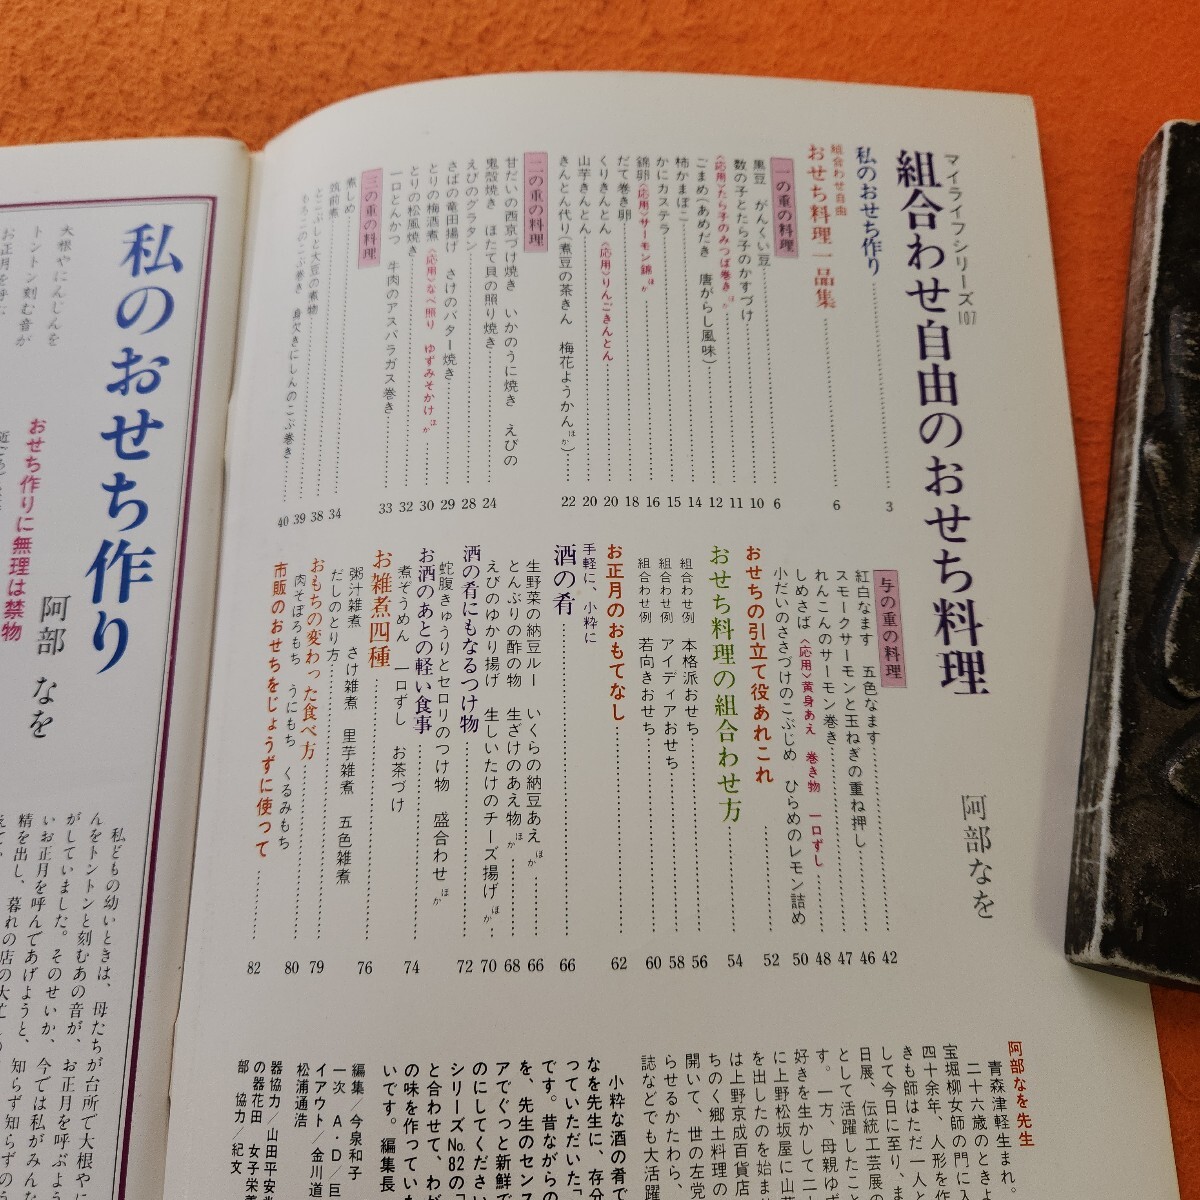 マイライフシリーズ107
組合わせ自由のおせち料理
阿部なを
私のおせち作り 3
組合わせ自由
おせち料理一品集 6
一の重の料理
黒豆 がんくい豆 6
数の子とたら子のかすづけ 10
〈応用〉たら子のみつば巻き ほか 11
ごまめ(あめだき 唐がらし風味) 12
柿かまぼこ 14
かにカステラ 15
錦卵〈応用〉サーモン錦 ほか 16
だて巻き卵 18
くりきんとん〈応用〉りんごきんとん 20
山芋きんとん 20
きんとん代り(煮豆の茶きん 梅花ようかん ほか) 22
二の重の料理
甘だいの西京づけ焼き いかのうに焼き えびの
鬼殻焼き ほたて貝の照り焼き 24
えびのグラタン 28
さばの竜田揚げ さけのバター焼き 29
とりの梅酒煮〈応用〉なべ照り ゆずみそかけ ほか 30
とりの松風焼き 32
一口とんかつ 牛肉のアスパラガス巻き 33
三の重の料理
煮しめ 34
筑前煮 38
とこぶしと大豆の煮物 39
身欠きにしんのこぶ巻き 40
与の重の料理
紅白なます 五色なます 42
スモークサーモンと玉ねぎの重ね押し 46
れんこんのサーモン巻き 47
しめさば〈応用〉黄身あえ 巻き物 一口ずし 48
小だいのささづけのこぶじめ ひらめのレモン詰め 50
おせちの引立て役あれこれ 52
おせち料理の組合わせ方 54
組合わせ例 本格派おせち 56
組合わせ例 アイディアおせち 58
組合わせ例 若向きおせち 60
お正月のおもてなし 62
手軽に、小粋に
酒の肴 66
生野菜の納豆ルー いくらの納豆あえ ほか 66
とんぶりの酢の物 生ざけのあえ物 ほか 68
えびのゆかり揚げ 生しいたけのチーズ揚げ ほか 70
酒の肴にもなるつけ物 72
蛇腹きゅうりとセロリのつけ物 盛合わせ ほか
お酒のあとの軽い食事 74
煮ぞうめん 一口ずし お茶づけ
お雑煮四種 76
粥汁雑煮 さけ雑煮 里芋雑煮 五色雑煮
だしのとり方
おもちの変わった食べ方 79
肉そぼろもち うにもち くるみもち 80
市販のおせちをじょうずに使って 82
阿部なを先生
青森津軽生まれ。
二十六歳のときよ
宝堀柳女師の門に入
四十余年、人形を作
きも師はただ一人と
して今日に至り、ま
日展、伝統工芸展の
として活躍したこと
す。一方、母親ゆず
好きを生かして二十
に上野松坂屋に山菜
を出したのを始ま
は上野京成百貨店
ちのく郷土料理の
開いて、世の左党
らせるかたわら、
誌などでも大活躍
小粋な酒の肴で
なを先生に、存分
っていただいた「
です。昔ながらの
を、先生のセンス
アでぐっと新鮮で
のにしてください
シリーズNo.82の「
と合わせて、わが
の味を作っていた
いです。編集長
編集/今泉和子
一次 A・D/巨
イアウト/金川道
松浦通浩
器協力/山田平安堂
の器花田 女子栄養
部 協力/紀文
私のおせち作り
阿部なを
おせち作りに無理は禁物
大根やにんじんを
トントン刻む音が
お正月を呼ぶ
私どもの幼いときは、母たちが台所で大根やに
んをトントンと刻むあの音が、お正月を呼ぶよう
がしていました。そのせいか、今では私がみんな
いお正月を呼んであげようと、知らず知らずの
精を出し、暮れの店の大忙